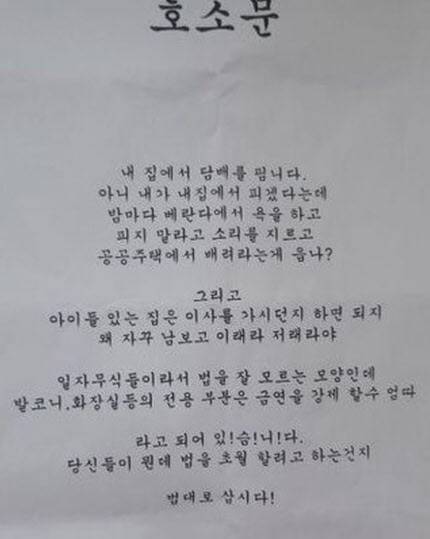 호소문
내 집에서 담배를 핍니다.
아니 내가 내집에서 피겠다는데
밤마다 베란다에서 욕을 하고
피지 말라고 소리를 지르고
공공주택에서 배려라는게 읍나?
그리고
아이들 있는 집은 이사를 가시던지 하면 되지
왜 자꾸 남보고 이래라 저래라야
일자무식들이라서 법을 잘 모르는 모양인데
발코니,화장실등의 전용 부분은 금연을 강제 할수 없따
라고 되어 있!습!니!다.
당신들이 뭔데 법을 초월 할려고 하는건지
법대로 삽시다!